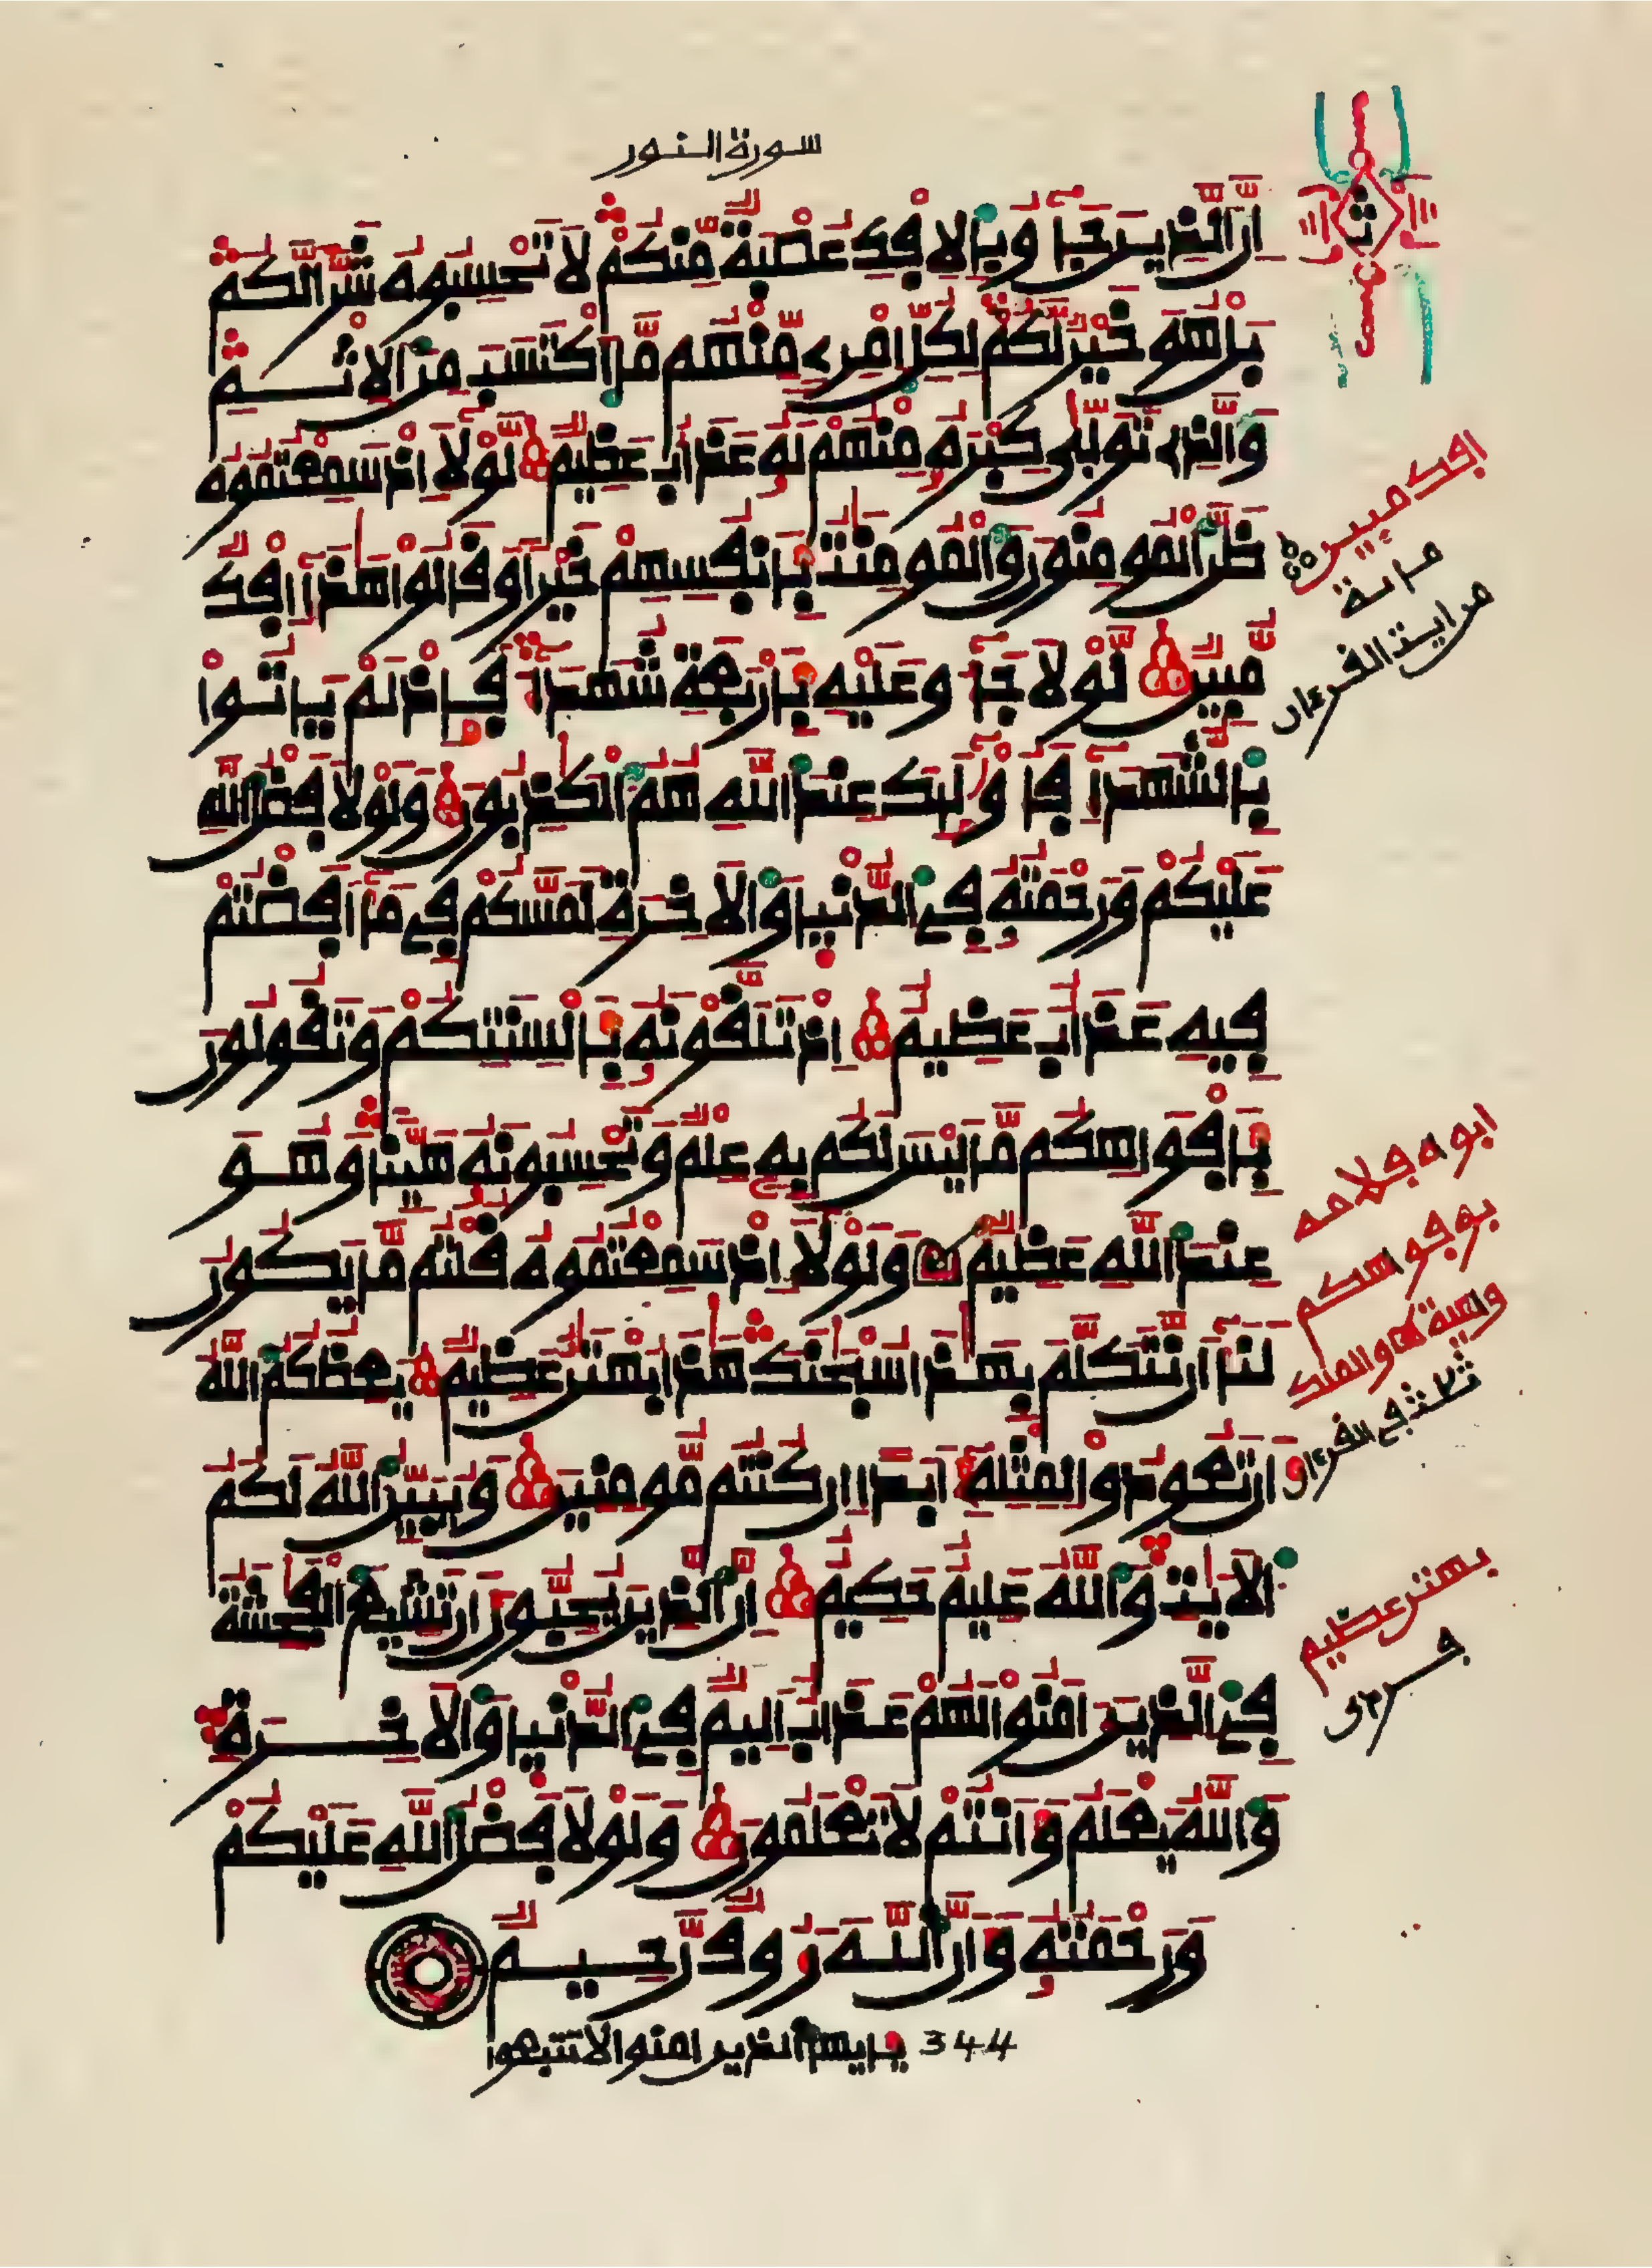 سورة النور
إِنَّ ٱلَّذِينَ جَآءُو بِٱلۡإِفۡكِ عُصۡبَةٞ مِّنكُمۡ لَا تَحۡسِبُوهُ شَرّٗا لَّكُم
بَلۡ هُوَ خَيۡرٞ لَّكُمۡ لِكُلِّ ٱمۡرِيٕٖ مِّنۡهُم مَّا ٱكۡتَسَبَ مِنَ ٱلۡإِثۡمِ
وَٱلَّذِي تَوَلَّىٰ كِبۡرَهُۥ مِنۡهُمۡ لَهُۥ عَذَابٌ عَظِيمٞ لَّوۡلَآ إِذۡ سَمِعۡتُمُوهُ
ظَنَّ ٱلۡمُومِنُونَ وَٱلۡمُومِنَٰتُ بِأَنفُسِهِمۡ خَيۡرٗا وَقَالُواْ هَٰذَآ إِفۡكٞ
مُّبِينٞ لَّوۡلَا جَآءُو عَلَيۡهِ بِأَرۡبَعَةِ شُهَدَآءَ فَإِذۡ لَمۡ يَاتُواْ
بِٱلشُّهَدَآءِ فَأُوْلَٰٓئِكَ عِندَ ٱللَّهِ هُمُ ٱلۡكَٰذِبُونَ وَلَوۡلَا فَضۡلُ ٱللَّهِ
عَلَيۡكُمۡ وَرَحۡمَتُهُۥ فِي ٱلدُّنۡيَا وَٱلۡأٓخِرَةِ لَمَسَّكُمۡ فِي مَآ أَفَضۡتُمۡ
فِيهِ عَذَابٌ عَظِيمٌ إِذۡ تَلَقَّوۡنَهُۥ بِأَلۡسِنَتِكُمۡ وَتَقُولُونَ
بِأَفۡوَاهِكُم مَّا لَيۡسَ لَكُم بِهِۦ عِلۡمٞ وَتَحۡسِبُونَهُۥ هَيِّنٗا وَهُوَ
عِندَ ٱللَّهِ عَظِيمٞ وَلَوۡلَآ إِذۡ سَمِعۡتُمُوهُ قُلۡتُم مَّا يَكُونُ
لَنَآ أَن نَّتَكَلَّمَ بِهَٰذَا سُبۡحَٰنَكَ هَٰذَا بُهۡتَٰنٌ عَظِيمٞ يَعِظُكُمُ ٱللَّهُ
أَن تَعُودُواْ لِمِثۡلِهِۦٓ أَبَدًا إِن كُنتُم مُّومِنِينَ وَيُبَيِّنُ ٱللَّهُ لَكُمُ
ٱلۡأٓيَٰتِ وَٱللَّهُ عَلِيمٌ حَكِيمٌ إِنَّ ٱلَّذِينَ يُحِبُّونَ أَن تَشِيعَ ٱلۡفَٰحِشَةُ
فِي ٱلَّذِينَ ءَامَنُواْ لَهُمۡ عَذَابٌ أَلِيمٞ فِي ٱلدُّنۡيَا وَٱلۡأٓخِرَةِ
وَٱللَّهُ يَعۡلَمُ وَأَنتُمۡ لَا تَعۡلَمُونَ وَلَوۡلَا فَضۡلُ ٱللَّهِ عَلَيۡكُمۡ
وَرَحۡمَتُهُۥ وَأَنَّ ٱللَّهَ رَءُوفٞ رَّحِيمٞ
344 يأيها الذين امنوا لا تتبعوا
ث
افك مبين
من اية القرءان
بافواهكم
ثلث في القرءان
بهتن عظيم